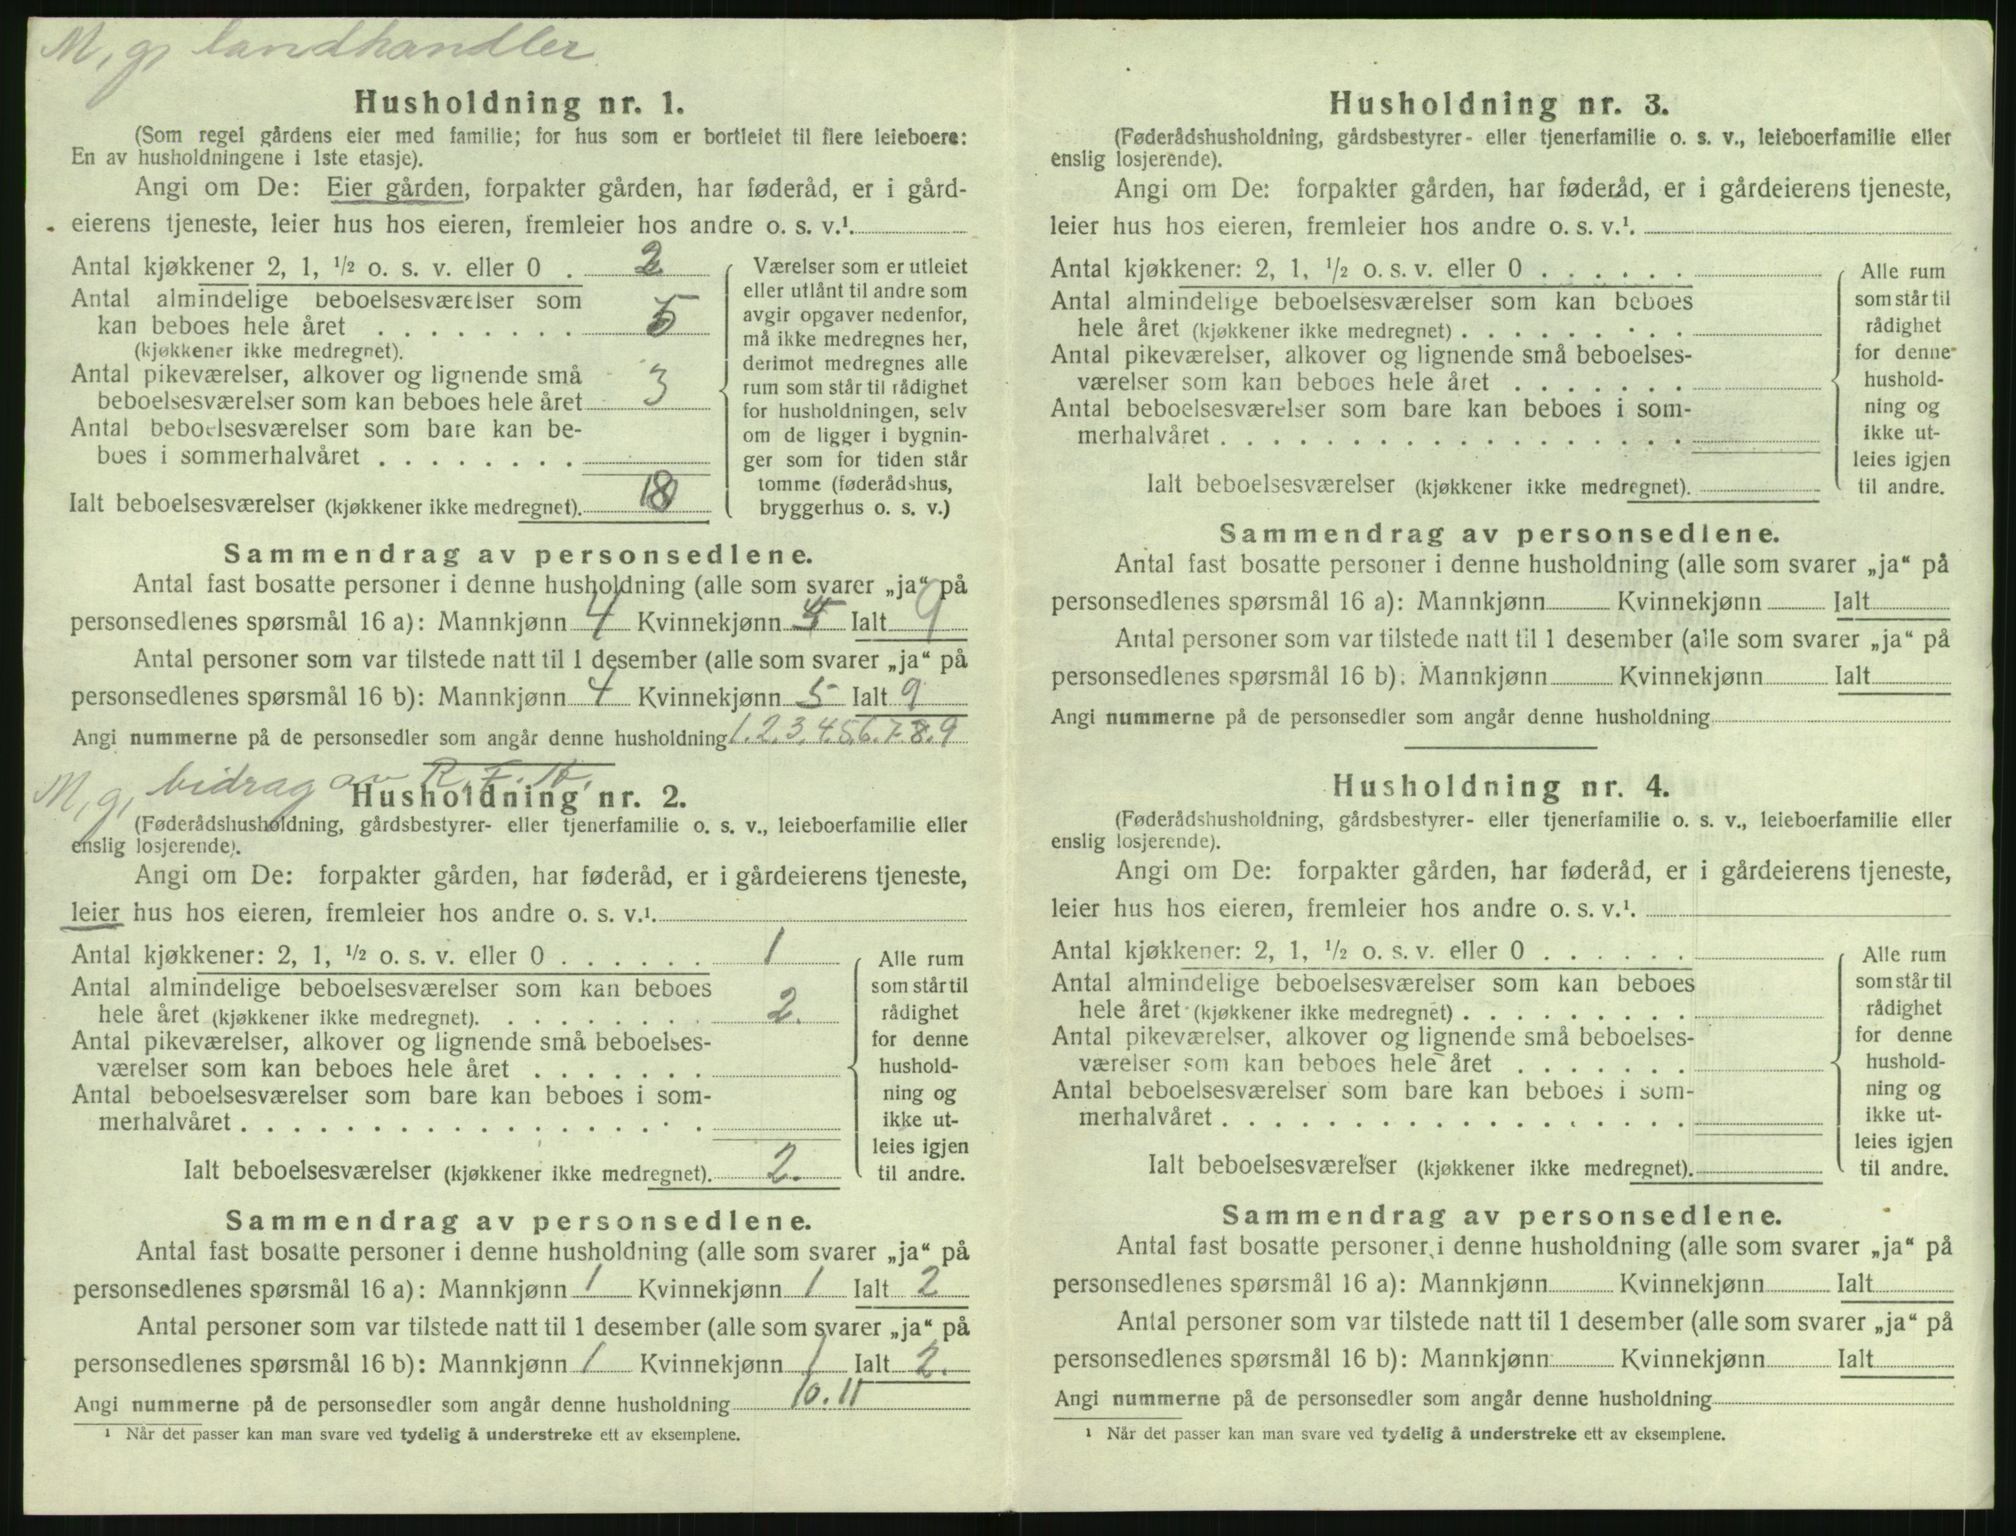 M, g, landhandler
Husholdning nr. 1.
(Som regel gårdens eier med familie; for hus som er bortleiet til flere leieboere:
En av husholdningene i 1ste etasje).
Angi om De: Eier gården, forpakter gården, har føderåd, er i gård-
eierens tjeneste, leier hus hos eieren, fremleier hos andre o. s. v.¹.
Antal kjøkkener 2, 1, ½ o. s. v. eller 0 . 2
Antal almindelige beboelsesværelser som
kan beboes hele året . . . . . . . . 5
(kjøkkener ikke medregnet).
Antal pikeværelser, alkover og lignende små
beboelsesværelser som kan beboes hele året 3
Antal beboelsesværelser som bare kan be-
boes i sommerhalvåret . . . . . . . .
Ialt beboelsesværelser (kjøkkener ikke medregnet). 8
Værelser som er utleiet
eller utlånt til andre som
avgir opgaver nedenfor,
må ikke medregnes her,
derimot medregnes alle
rum som står til rådighet
for husholdningen, selv
om de ligger i bygnin-
ger som for tiden står
tomme (føderådshus,
bryggerhus o. s. v.)
Sammendrag av personsedlene.
Antal fast bosatte personer i denne husholdning (alle som svarer „ja" på
personsedlenes spørsmål 16 a): Mannkjønn 4 Kvinnekjønn 5 Ialt 9
Antal personer som var tilstede natt til 1 desember (alle som svarer „ja" på
personsedlenes spørsmål 16 b): Mannkjønn 4 Kvinnekjønn 5 Ialt 9
Angi nummerne på de personsedler som angår denne husholdning 1.2.3.4.5.6.7.8.9
M, g, bidrag av R. F. A.
Husholdning nr. 2.
(Føderådshusholdning, gårdsbestyrer- eller tjenerfamilie o. s. v., leieboerfamilie eller
enslig losjerende).
Angi om De: forpakter gården, har føderåd, er i gårdeierens tjeneste,
leier hus hos eieren, fremleier hos andre o. s. v.¹.
Antal kjøkkener: 2, 1, ½ o. s. v. eller 0 . . . . . . 1
Antal almindelige beboelsesværelser som kan beboes
hele året (kjøkkener ikke medregnet). . . . . . . . . 2.
Antal pikeværelser, alkover og lignende små beboelses-
værelser som kan beboes hele året . . . . . . .
Antal beboelsesværelser som bare kan beboes i som-
merhalvåret . . . . . . . . . . . . . . . . . .
Ialt beboelsesværelser (kjøkkener ikke medregnet). 2.
Alle rum
som står til
rådighet
for denne
hushold-
ning og
ikke ut-
leies igjen
til andre.
Sammendrag av personsedlene.
Antal fast bosatte personer i denne husholdning (alle som svarer „ja" på
personsedlenes spørsmål 16 a): Mannkjønn 1 Kvinnekjønn 1 Ialt 2
Antal personer som var tilstede natt til 1 desember (alle som svarer „ja" på
personsedlenes spørsmål 16 b): Mannkjønn 1 Kvinnekjønn 1 Ialt 2.
Angi nummerne på de personsedler som angår denne husholdning 10. 11
¹ Når det passer kan man svare ved tydelig å understreke ett av eksemplene.
Husholdning nr. 3.
(Føderådshusholdning, gårdsbestyrer- eller tjenerfamilie o. s. v., leieboerfamilie eller
enslig losjerende).
Angi om De: forpakter gården, har føderåd, er i gårdeierens tjeneste,
leier hus hos eieren, fremleier hos andre o. s. v.¹.
Antal kjøkkener: 2, 1, ½ o. s. v. eller 0 . . . . . .
Antal almindelige beboelsesværelser som kan beboes
hele året (kjøkkener ikke medregnet) . . . . . . . . .
Antal pikeværelser, alkover og lignende små beboelses-
værelser som kan beboes hele året . . . . . . .
Antal beboelsesværelser som bare kan beboes i som-
merhalvåret . . . . . . . . . . . . . . . . . .
Ialt beboelsesværelser (kjøkkener ikke medregnet).
Alle rum
som står til
rådighet
for denne
hushold-
ning og
ikke ut-
leies igjen
til andre.
Sammendrag av personsedlene.
Antal fast bosatte personer i denne husholdning (alle som svarer „ja" på
personsedlenes spørsmål 16 a): Mannkjønn Kvinnekjønn Ialt
Antal personer som var tilstede natt til 1 desember (alle som svarer „ja" på
personsedlenes spørsmål 16 b): Mannkjønn Kvinnekjønn Ialt
Angi nummerne på de personsedler som angår denne husholdning
Husholdning nr. 4.
(Føderådshusholdning, gårdsbestyrer- eller tjenerfamilie o. s. v., leieboerfamilie eller
enslig losjerende).
Angi om De: forpakter gården, har føderåd, er i gårdeierens tjeneste,
leier hus hos eieren, fremleier hos andre o. s. v.¹.
Antal kjøkkener: 2, 1, ½ o. s. v. eller 0 . . . . . .
Antal almindelige beboelsesværelser som kan beboes
hele året (kjøkkener ikke medregnet) . . . . . . . . .
Antal pikeværelser, alkover og lignende små beboelses-
værelser som kan beboes hele året . . . . . . .
Antal beboelsesværelser som bare kan beboes i som-
merhalvåret . . . . . . . . . . . . . . . . . .
Ialt beboelsesværelser (kjøkkener ikke medregnet).
Alle rum
som står til
rådighet
for denne
hushold-
ning og
ikke ut-
leies igjen
til andre.
Sammendrag av personsedlene.
Antal fast bosatte personer i denne husholdning (alle som svarer „ja" på
personsedlenes spørsmål 16 a): Mannkjønn Kvinnekjønn Ialt
Antal personer som var tilstede natt til 1 desember (alle som svarer „ja" på
personsedlenes spørsmål 16 b): Mannkjønn Kvinnekjønn Ialt
Angi nummerne på de personsedler som angår denne husholdning
¹ Når det passer kan man svare ved tydelig å understreke ett av eksemplene.